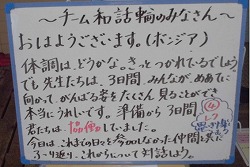 ～チーム和話輪のみなさん～
おはようございます。(ボンジア)
体調は、どうかな。きっとつかれているでしょう
でも先生たちは、3日間 みんなが、めあてに
向かって がんばる姿をたくさん見ることができ
本当にうれしいです。準備から3日間
君たちは、協働していました。
今日は、これまでの日々を今のなかった仲間と共に
ふり返り、これからについて対話しよう。